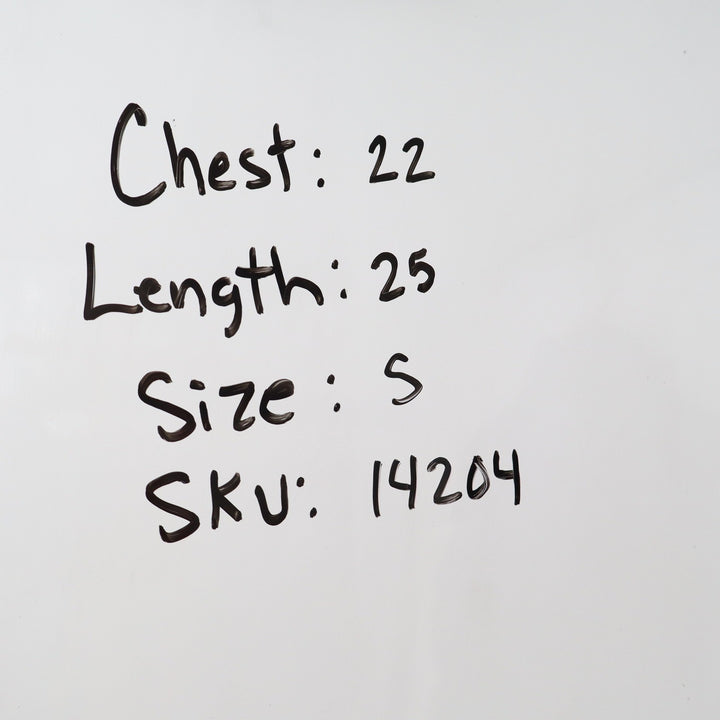 Chest: 22
Length: 25
Size: S
SKU: 14204